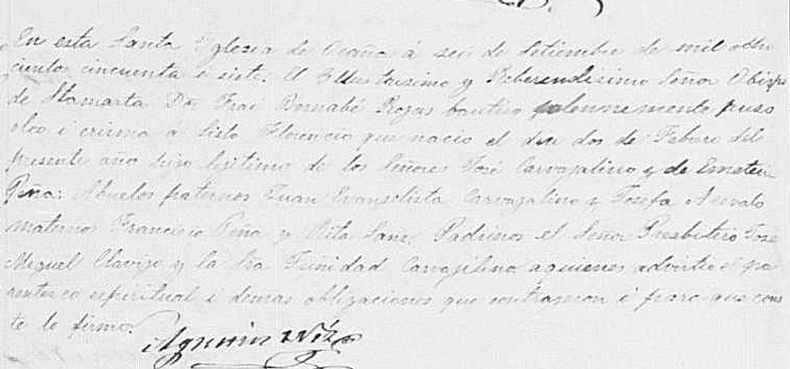 En esta Santa Yglesia de Ocaña á seis de Setiembre de mil ocho
cientos cincuenta i siete: El Yllustrisimo y Reberendisimo Señor Obispo
de Stamarta Dr. Frai Bernabé Rojas bautizo solennemente puso
oleo i crisma á Sisto Florencio que nacio el dia dos de Febero del
presente año hijo lejitimo de los Señores José Carvajalino y de Emeteria
Peña: Abuelos paternos Juan Evanselista Carvajalino y Josefa Arevalo
maternos Francisco Peña y Rita Sanz. Padrinos el Señor Presbitero José
Miguel Clavijo y la Sra Trinidad Carvajalino a quienes advirtio el pa
rentesco espiritual i demas obligaciones que contrageron i para que cons
te lo firmo.